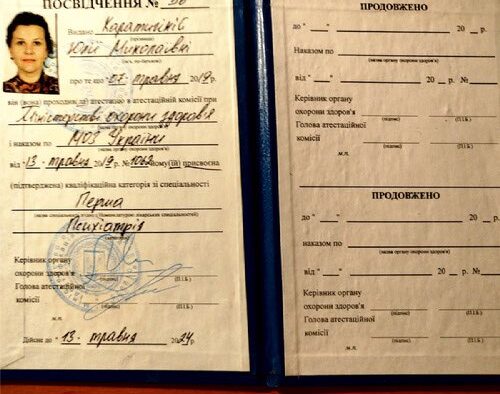 ПОСВІДЧЕННЯ №
Видано Каратников
(прізвище)
Юлії Миколаївні
(ім'я, по-батькові)
про те що "07" травня 2019 р.
він (вона) проходив (ла) атестацію в атестаційній комісії при
Міністерстві охорони здоров'я
(назва органу охорони здоров'я)
і наказом по МОЗ України
(назва органу охорони здоров'я)
від "13" травня 2019 р. № 1062 йому (їй) присвоєна
(підтверджена) кваліфікаційна категорія зі спеціальності
Перша
(назва спеціальності згідно з Номенклатурою лікарських спеціальностей)
Психіатрія
Керівник органу
охорони здоров'я
(підпис) (П.І.Б.)
Голова атестаційної
комісії
(підпис) (П.І.Б.)
м.п.
Дійсне до "13" травня 2024 р.
ПРОДОВЖЕНО
до " " 20 р.
Наказом по
(назва органу охорони здоров'я)
від " " 20 р. №
Керівник органу
охорони здоров'я
(підпис) (П.І.Б.)
Голова атестаційної
комісії
(підпис) (П.І.Б.)
м.п.
ПРОДОВЖЕНО
до " " 20 р.
наказом по
(назва органу охорони здоров'я)
від " " 20 р. №
Керівник органу
охорони здоров'я
(підпис) (П.І.Б.)
Голова атестаційної
комісії
(підпис) (П.І.Б.)
м.п.